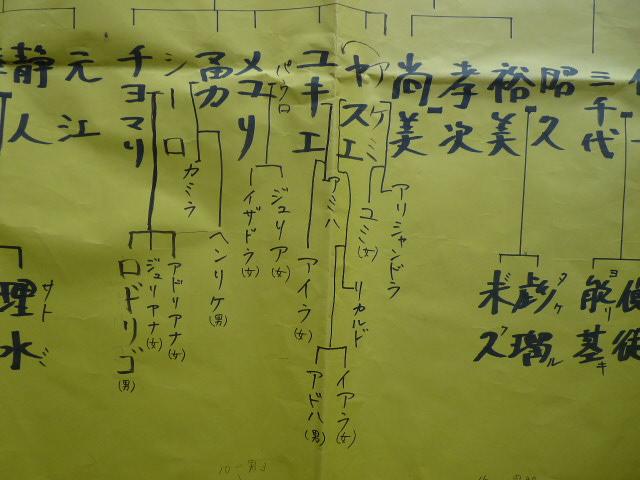 三千代
昭久
裕美
孝次
尚美
ヤスエ
アケミ
ユキエ
メユリ
パウロ
勇
シーロ
チヨマリ
元江
静人
カミラ
ヘンリケ(男)
イザドラ(女)
ジュリア(女)
アイラ(女)
アミハ
ユミ(女)
アリシャンドラ
リカルド
イアラ(女)
アドハ(男)
アドリアナ(女)
ジュリアナ(女)
ロドリゴ(男)
ヨリキ
能基
タケル
彪瑠
サトミ
理水